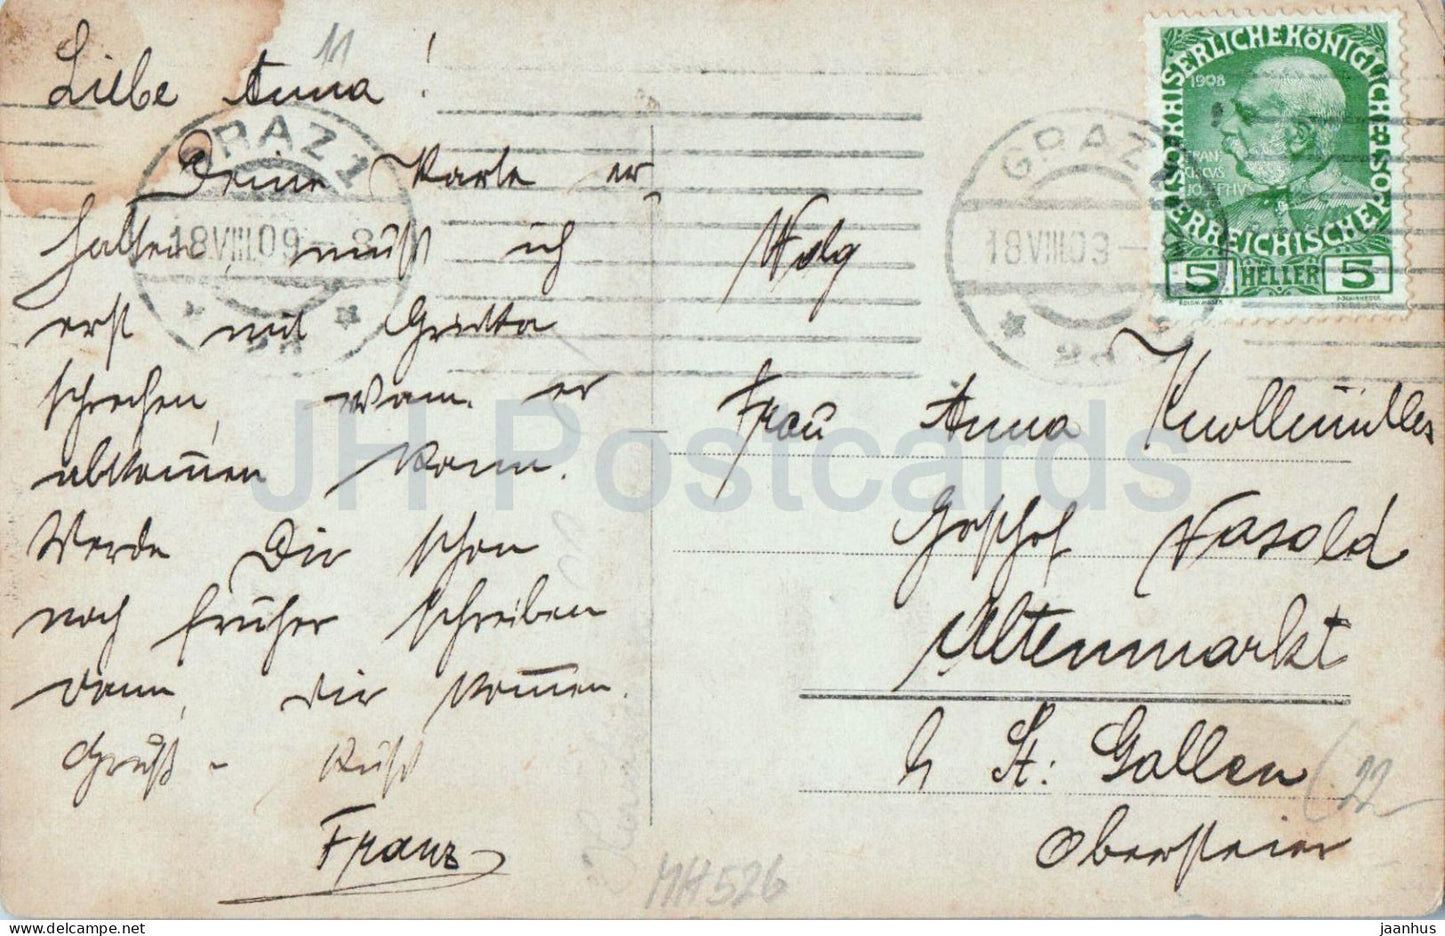 Liebe Anna!
11
Deine Karte er
halten, muß ich
erst mit Gretta
sprechen, wann er
abkommen kann.
Werde Dir schon
noch früher schreiben
wann wir kommen.
Gruß - Kuß
Franz
GRAZ 1
18.VIII.09-8
GRAZ
18.VIII.09-
KAISERLICHE KÖNIGLICHE ÖSTERREICHISCHE POST
1908
FRAN
CISCVS
JOSEPHVS
5 HELLER 5
Wolg
Frau Anna Knollmüller
Gasthof Nasold
Altenmarkt
b St: Gallen
Obersteier
22
MH526
JH Postcards
jaanhus